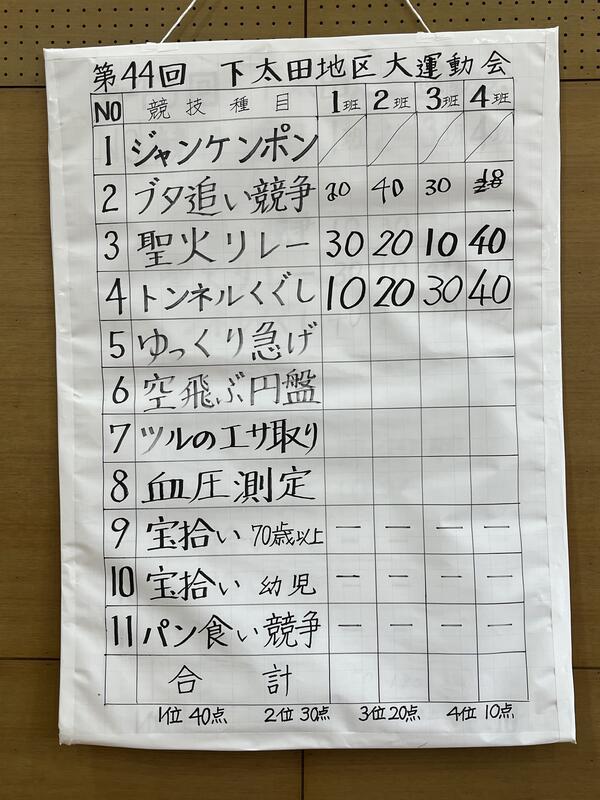 第44回 下太田地区大運動会
NO 競技種目 1班 2班 3班 4班
1 ジャンケンポン
2 ブタ追い競争 20 40 30
3 聖火リレー 30 20 10 40
4 トンネルくぐし 10 20 30 40
5 ゆっくり急げ
6 空飛ぶ円盤
7 ツルのエサ取り
8 血圧測定
9 宝拾い 70歳以上 — — — —
10 宝拾い 幼児 — — — —
11 パン食い競争 — — — —
合計
1位 40点 2位 30点 3位 20点 4位 10点